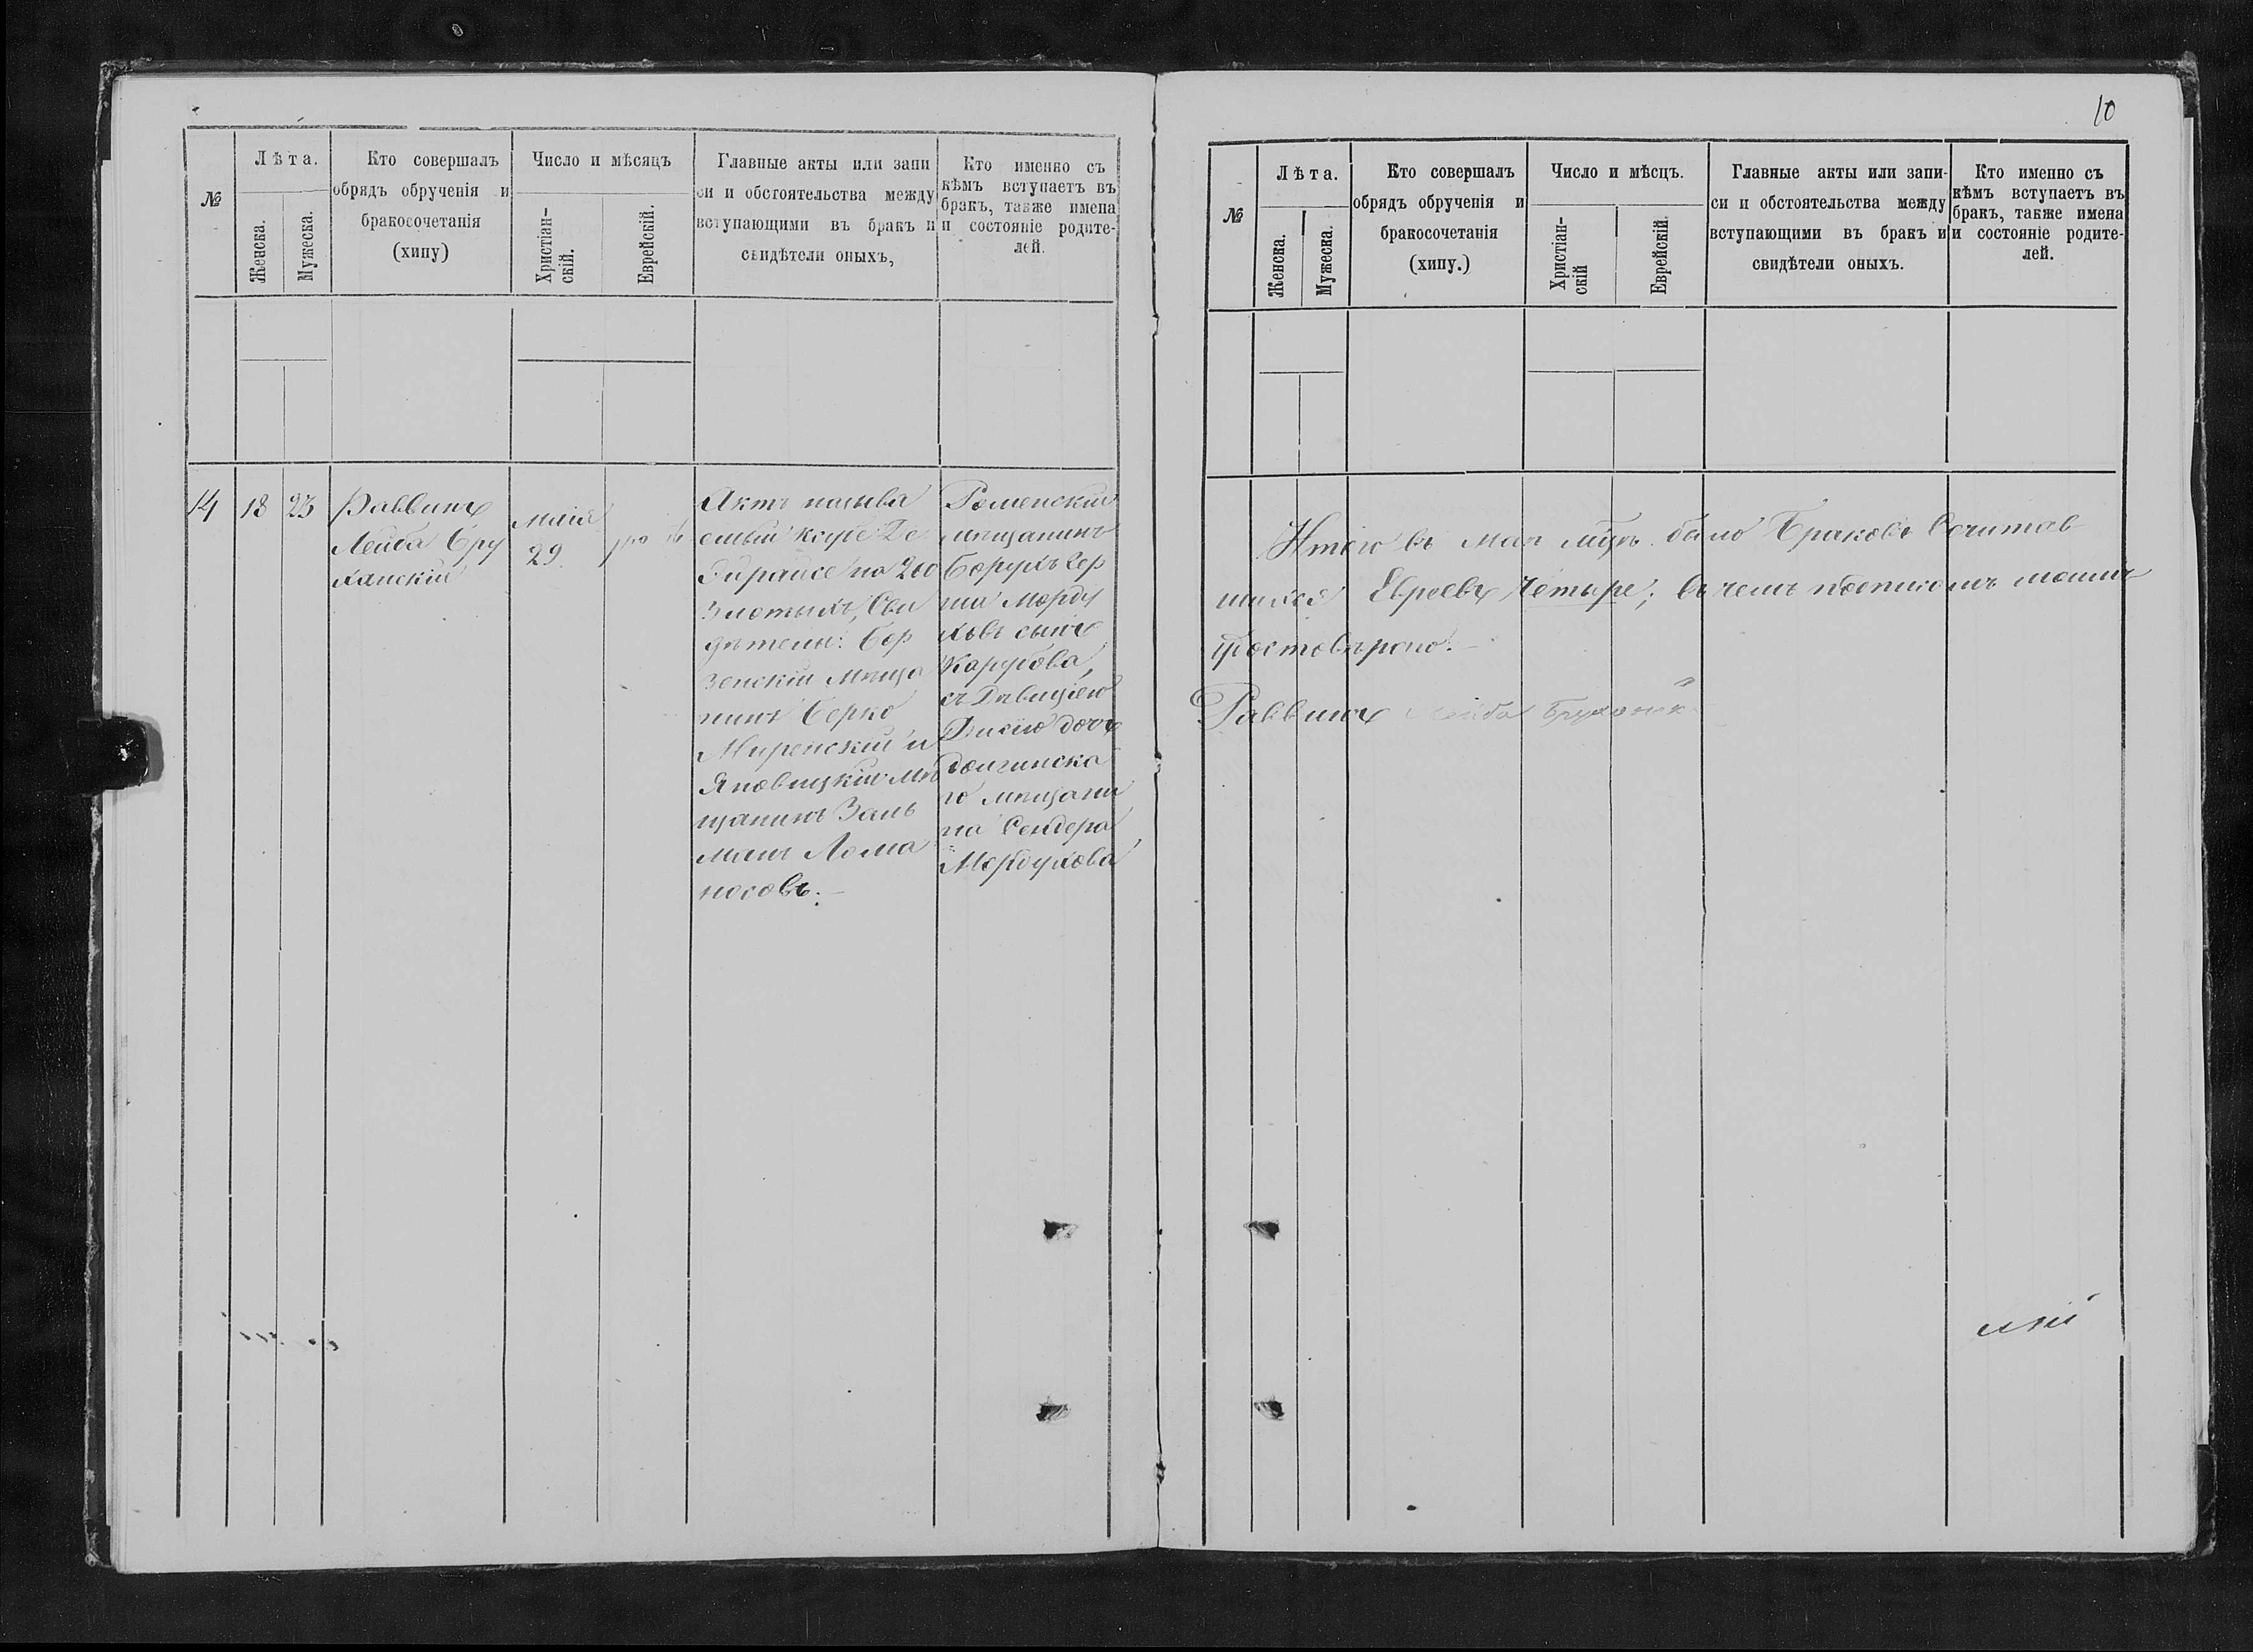 10
№
Лѣта.
Женска.
Мужеска.
Кто совершалъ
обрядъ обрученія и
бракосочетанія
(хипу)
Число и мѣсяцъ
Христіан-
скій.
Еврейскій.
Главные акты или запи
си и обстоятельства между
вступающими въ бракъ и
свидѣтели оныхъ,
Кто именно съ
кѣмъ вступаетъ въ
бракъ, также имена
и состояніе родите-
лей.
14
18
23
Раввинъ
Лейба Бру
ханскій
Маія
29
Актъ называ
емый ксубе Де
Эирайсе на 200
Злотыхъ, Сви
дѣтели: Бор
зенскій мѣща
нинъ Берко
Миренскій и
Яновицкій мѣ
щанинъ Заль
манъ Лома
носовъ.
Роменскій
мѣщанинъ
Борухъ Гер
ша Морду
ховъ сынъ
Карубова,
съ Дѣвицею
дочь
Долгинска
го мѣщани
на Сендера
Мордухова
№
Лѣта.
Женска.
Мужеска.
Кто совершалъ
обрядъ обрученія и
бракосочетанія
(хипу.)
Число и мѣсцъ.
Христіан-
скій
Еврейскій.
Главные акты или запи-
си и обстоятельства между
вступающими въ бракъ и
свидѣтели оныхъ.
Кто именно съ
кѣмъ вступаетъ въ
бракъ, также имена
и состояніе родите-
лей.
Итого въ маѣ мцѣ было Браковъ Сочитав
шихся Евреевъ Четыре; въ чемъ подписомъ моимъ
удостовѣряю.
Раввинъ Лейба Брухонск